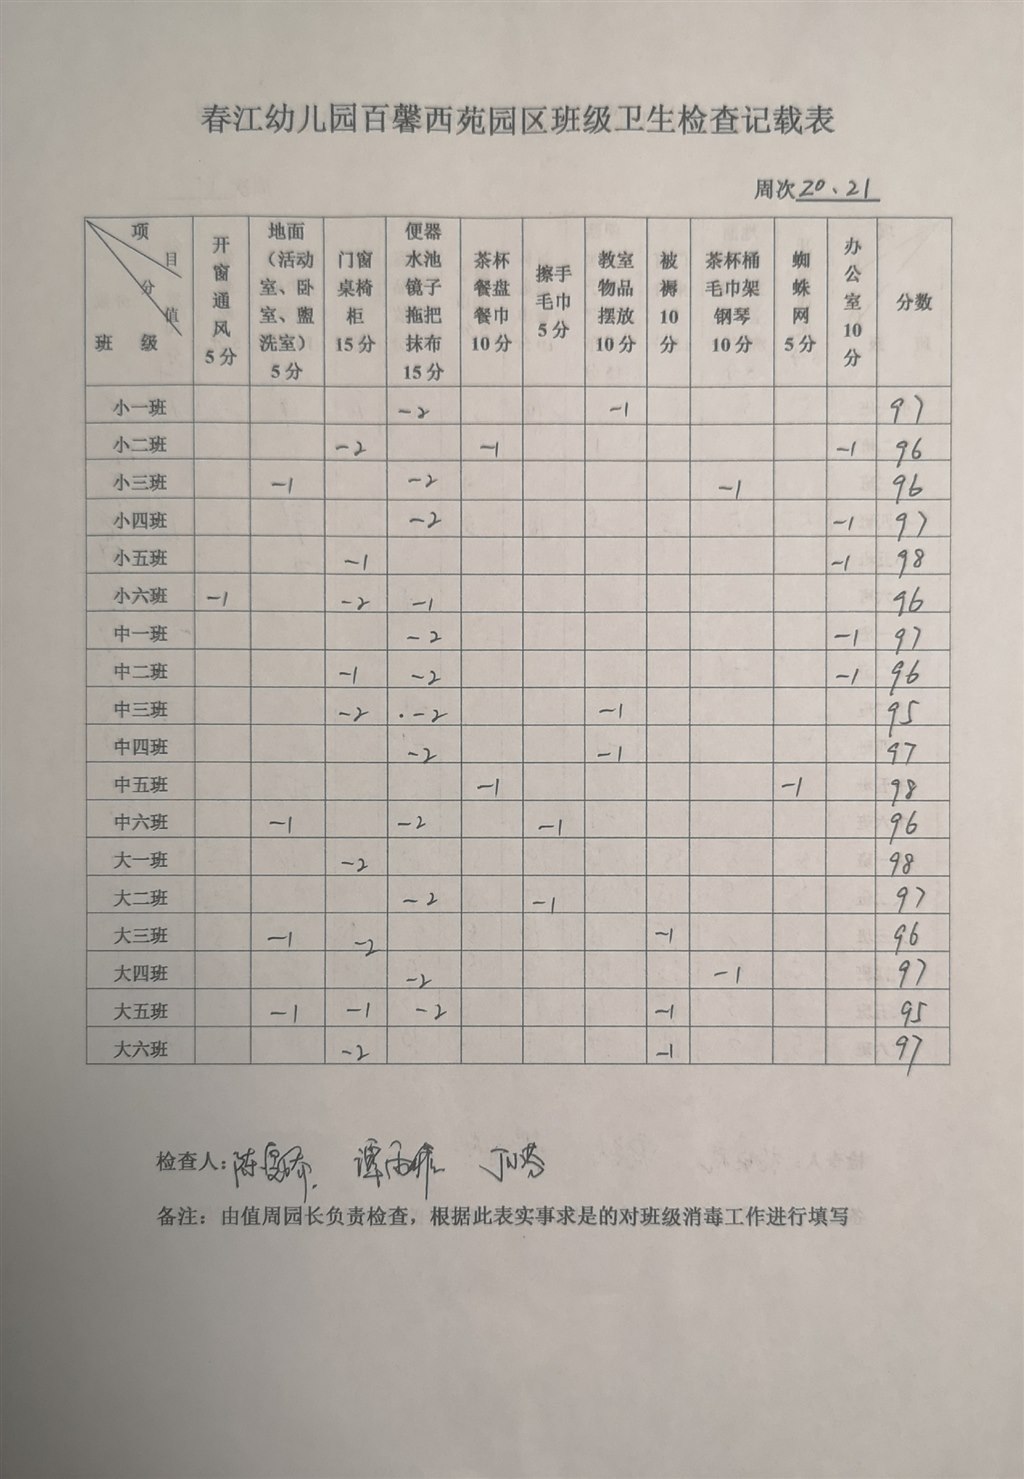 春江幼儿园百馨西苑园区班级卫生检查记载表
周次 20、21
项目 分值 班级 开窗通风5分 地面（活动室、卧室、盥洗室）5分 门窗桌椅柜15分 便器水池镜子拖把抹布15分 茶杯餐盘餐巾10分 擦手毛巾5分 教室物品摆放10分 被褥10分 茶杯桶毛巾架钢琴10分 蜘蛛网5分 办公室10分 分数
小一班 -2 -1 97
小二班 -2 -1 -1 96
小三班 -1 -2 -1 96
小四班 -2 -1 97
小五班 -1 -1 98
小六班 -1 -2 -1 96
中一班 -2 -1 97
中二班 -1 -2 -1 96
中三班 -2 -2 -1 95
中四班 -2 -1 97
中五班 -1 -1 98
中六班 -1 -2 -1 96
大一班 -2 98
大二班 -2 -1 97
大三班 -1 -2 -1 96
大四班 -2 -1 97
大五班 -1 -1 -2 -1 95
大六班 -2 -1 97
检查人：
备注：由值周园长负责检查，根据此表实事求是的对班级消毒工作进行填写